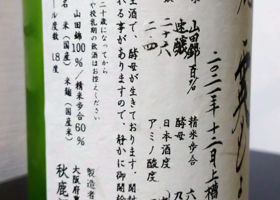 二〇二一年十二月上槽
山田錦 百% 精米歩合 六
速醸 酵母
二・六 日本酒度
二・四 アミノ酸度
生酒で、酵母が生きております。開封
れる事がありますので、静かに御開
二十歳になってから
や授乳期の飲酒はお控えください
山田錦100%/精米歩合60%
米(国産)米麹(国産米)
ール度数 18度
製造者
大阪府
秋鹿